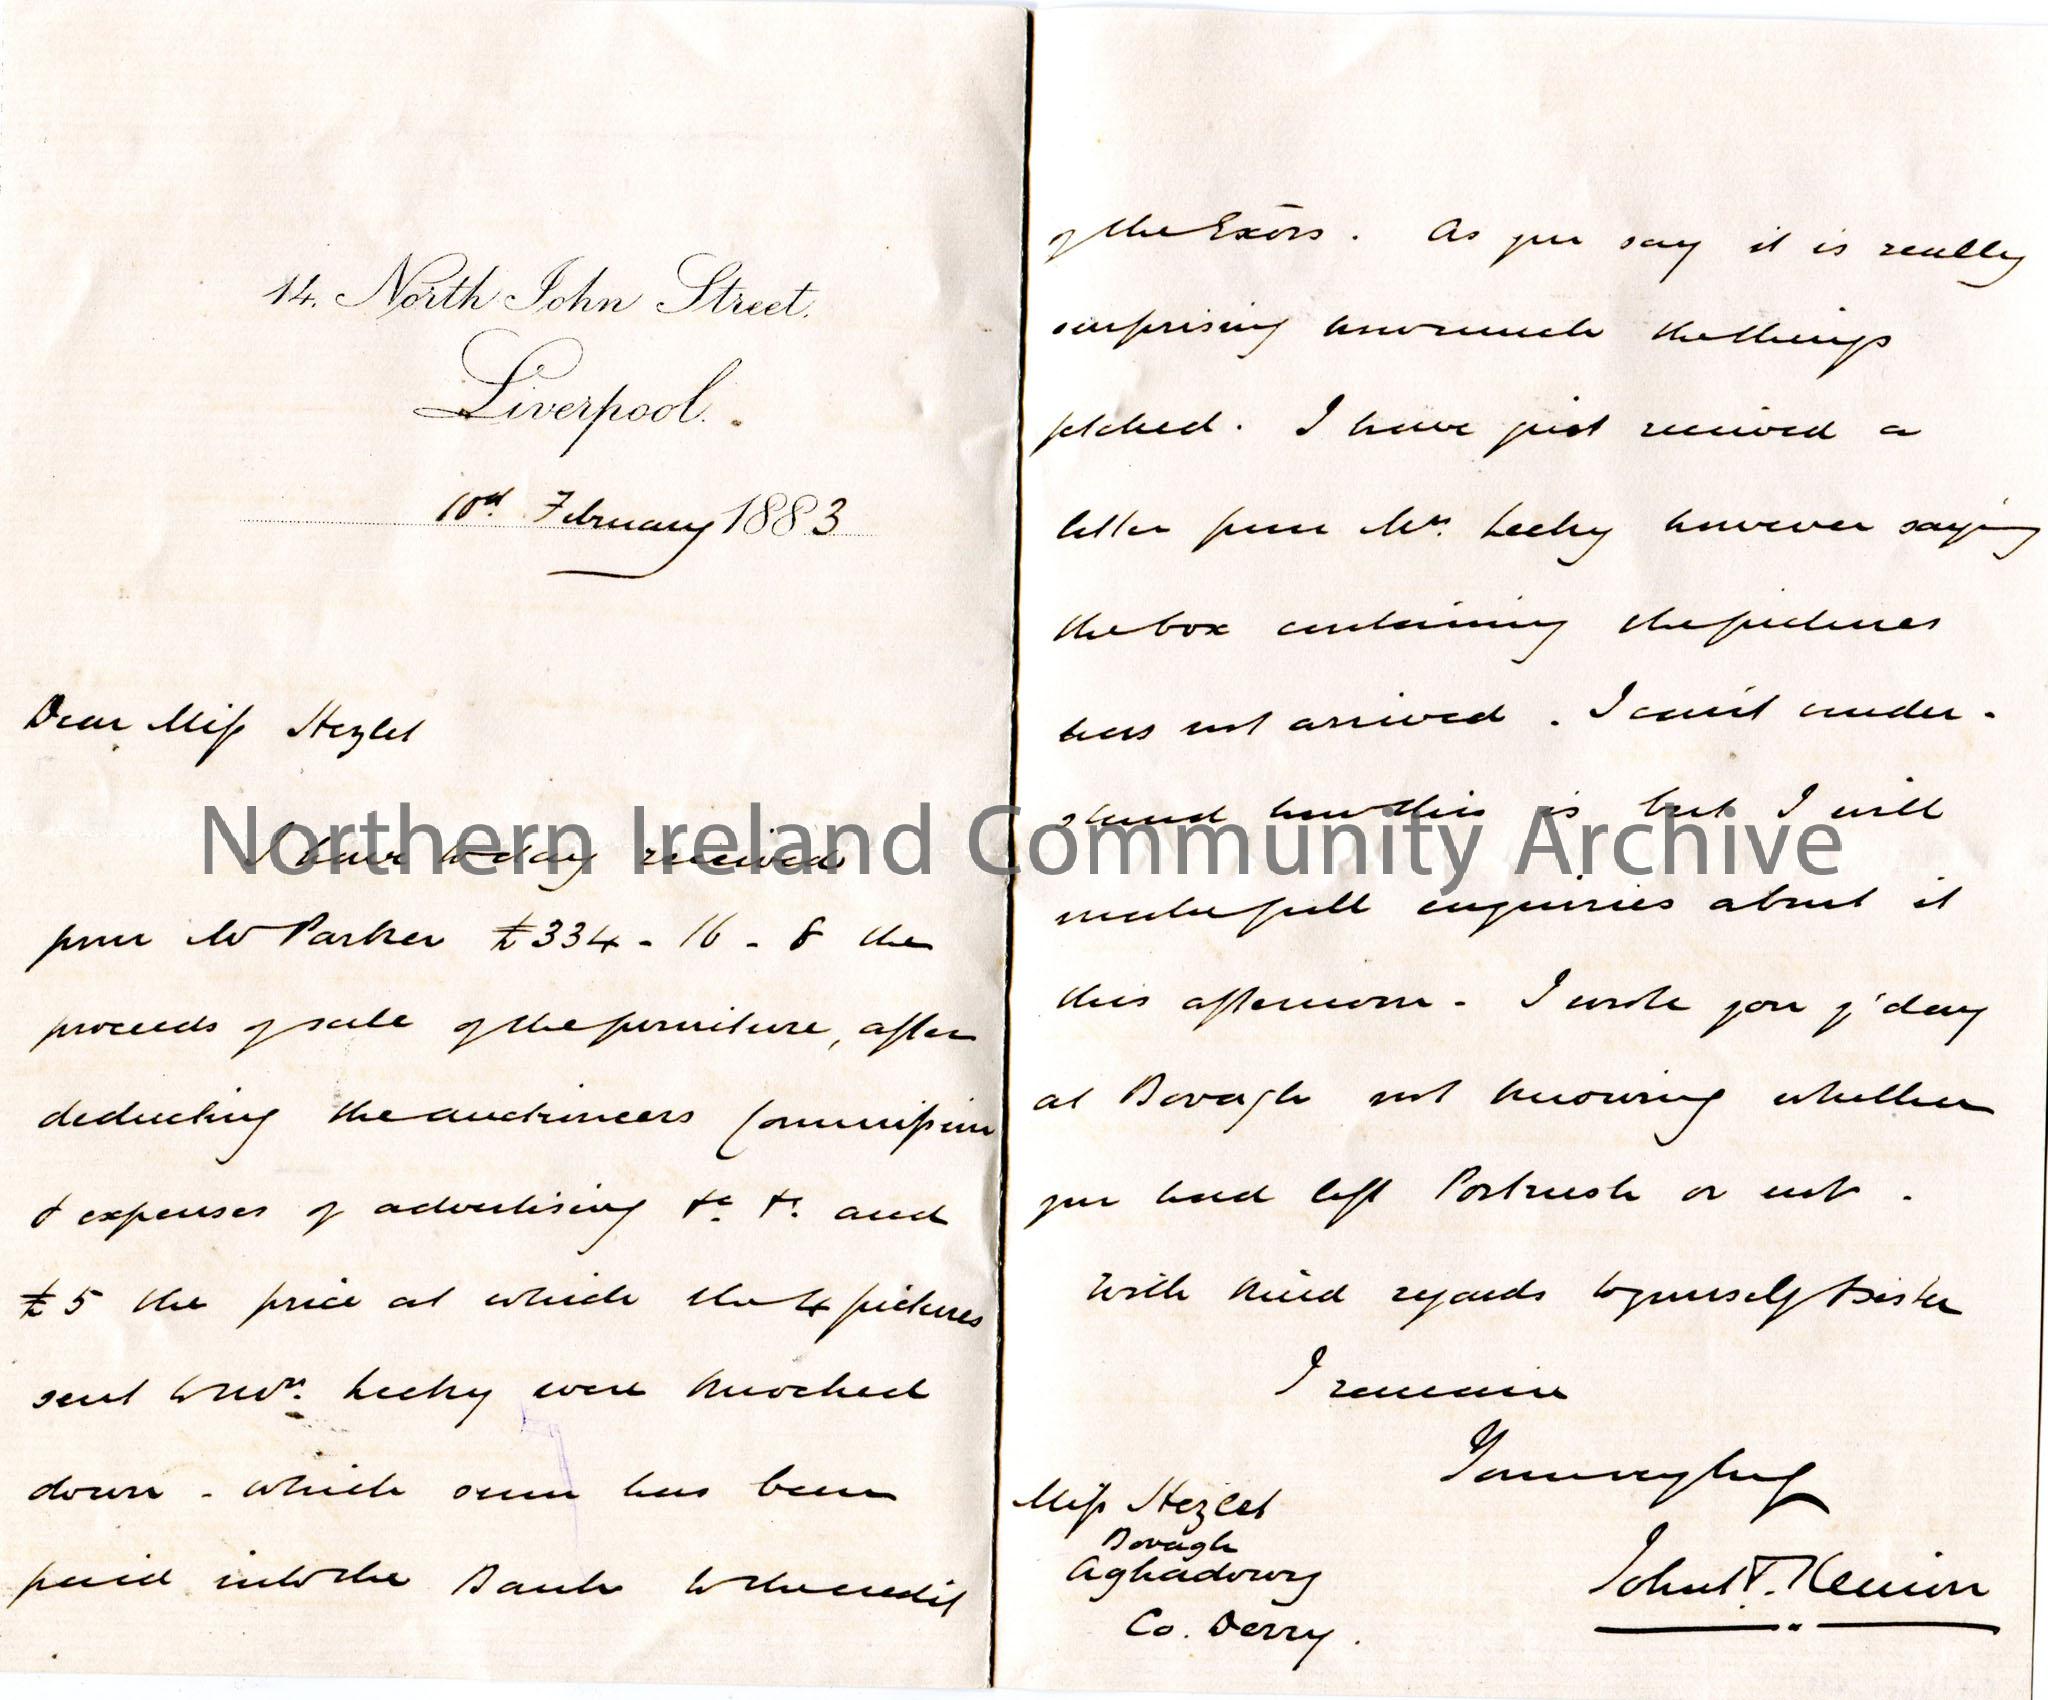 14. North John Street.
Liverpool.
10th February 1883
Dear Miss Hezlet
I have to day received
from Mr Parker £334 - 16 - 8 the
proceeds of sale of the furniture, after
deducting the auctioneers Commission
& expenses of advertising &c. &c. and
£5 the price at which the 4 pictures
sent to Mrs. Lecky were knocked
down - which sum has been
paid into the Bank to the credit
of the Exōrs. As you say it is really
surprising how much the things
fetched. I have just received a
letter from Mrs. Lecky however saying
the box containing the pictures
has not arrived. I can't under-
stand how this is but I will
make full enquiries about it
this afternoon - I wrote you y'day
at Bovagh not knowing whether
you had left Portrush or not.
With kind regards to yourself & sister
I remain
Yours very truly
John T.
Miss Hezlet
Bovagh
Aghadowey
Co. Derry.
Northern Ireland Community Archive